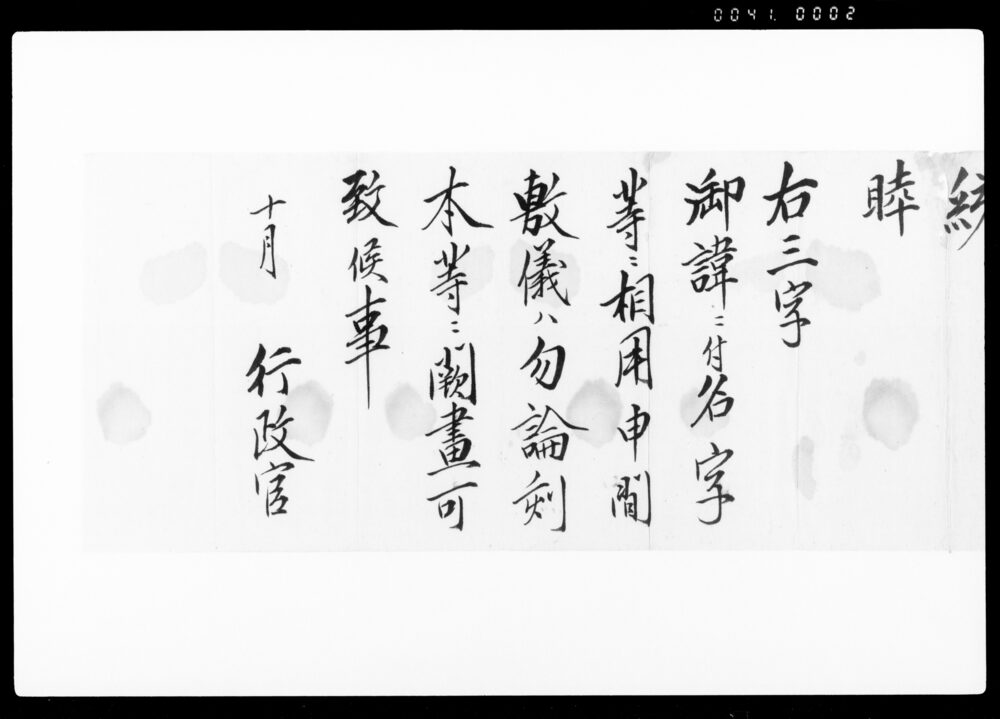 0041. 0002
統
睦
右三字
御諱ニ付名字
等ニ相用申間
敷儀ハ勿論刻
本等ニ闕畫可
致候事
十月
行政官